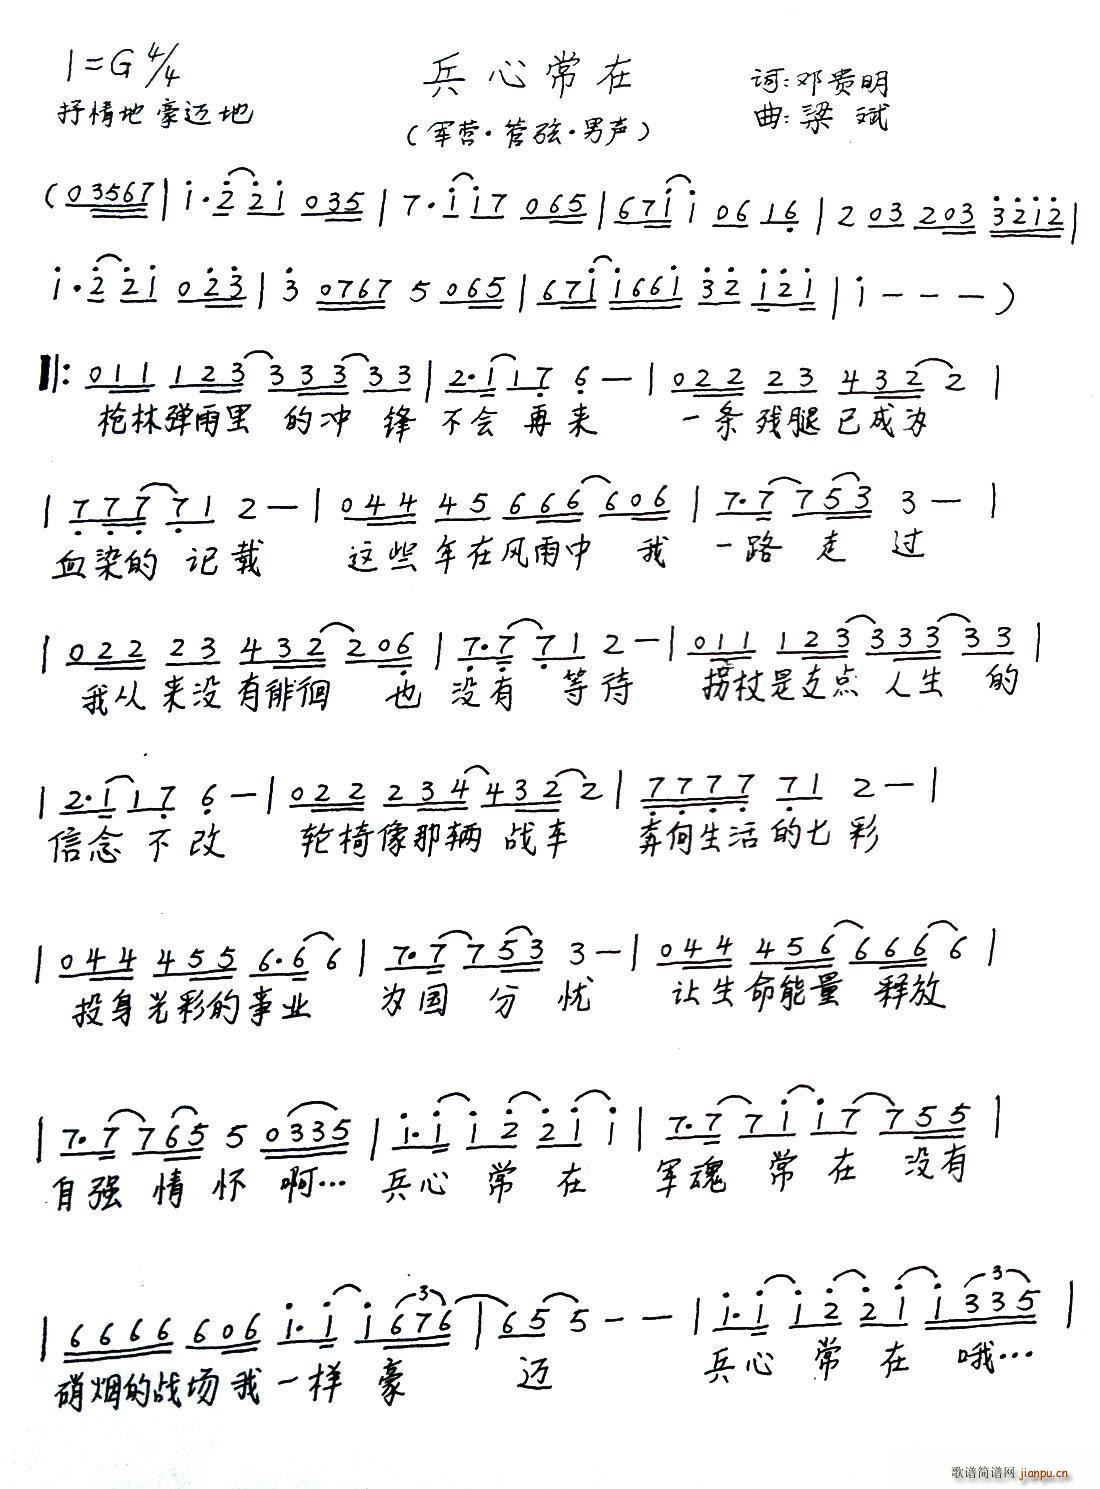 1=G 4/4
兵心常在
词:邓贵明
抒情地 豪迈地
(军营·管弦·男声)
曲:梁斌
(03567|i·2 2i 035|7·i i7 065|67i i 06 16|2 03 203 3212|
i·2 2i 023|3 0767 5 065|67i i66i 32 i2i|i - - - )
‖: 011 123 3333 33|2·1 17 6 -|022 23 432 2|
枪林弹雨里 的冲 锋 不会 再来 一条残腿已成为
|777 71 2 -|044 45 666 606|7·7 753 3 -|
血染的 记载 这些年在风雨中 我 一路 走 过
|022 23 432 206|7·7 71 2 -|011 123 333 33|
我从 来没有徘徊 也 没有 等待 拐杖是支点 人生 的
|2·1 17 6 -|022 234 432 2|7777 71 2 -|
信念 不改 轮椅像那辆 战车 奔向生活的七彩
|044 455 6·6 6|7·7 753 3 -|044 456 666 6|
投身光彩的事业 为国 分 忧 让生命能量 释放
|7·7 765 5 0335|i·i i2 2i i|7·7 7i i7 755|
自强 情 怀 啊… 兵心 常 在 军魂 常 在 没有
|6666 606 i·i i676|65 5 - -|i·i i2 2i i335|
硝烟的战场我一样 豪 迈 兵心 常 在 哦…
歌谱简谱网 jianpu.cn